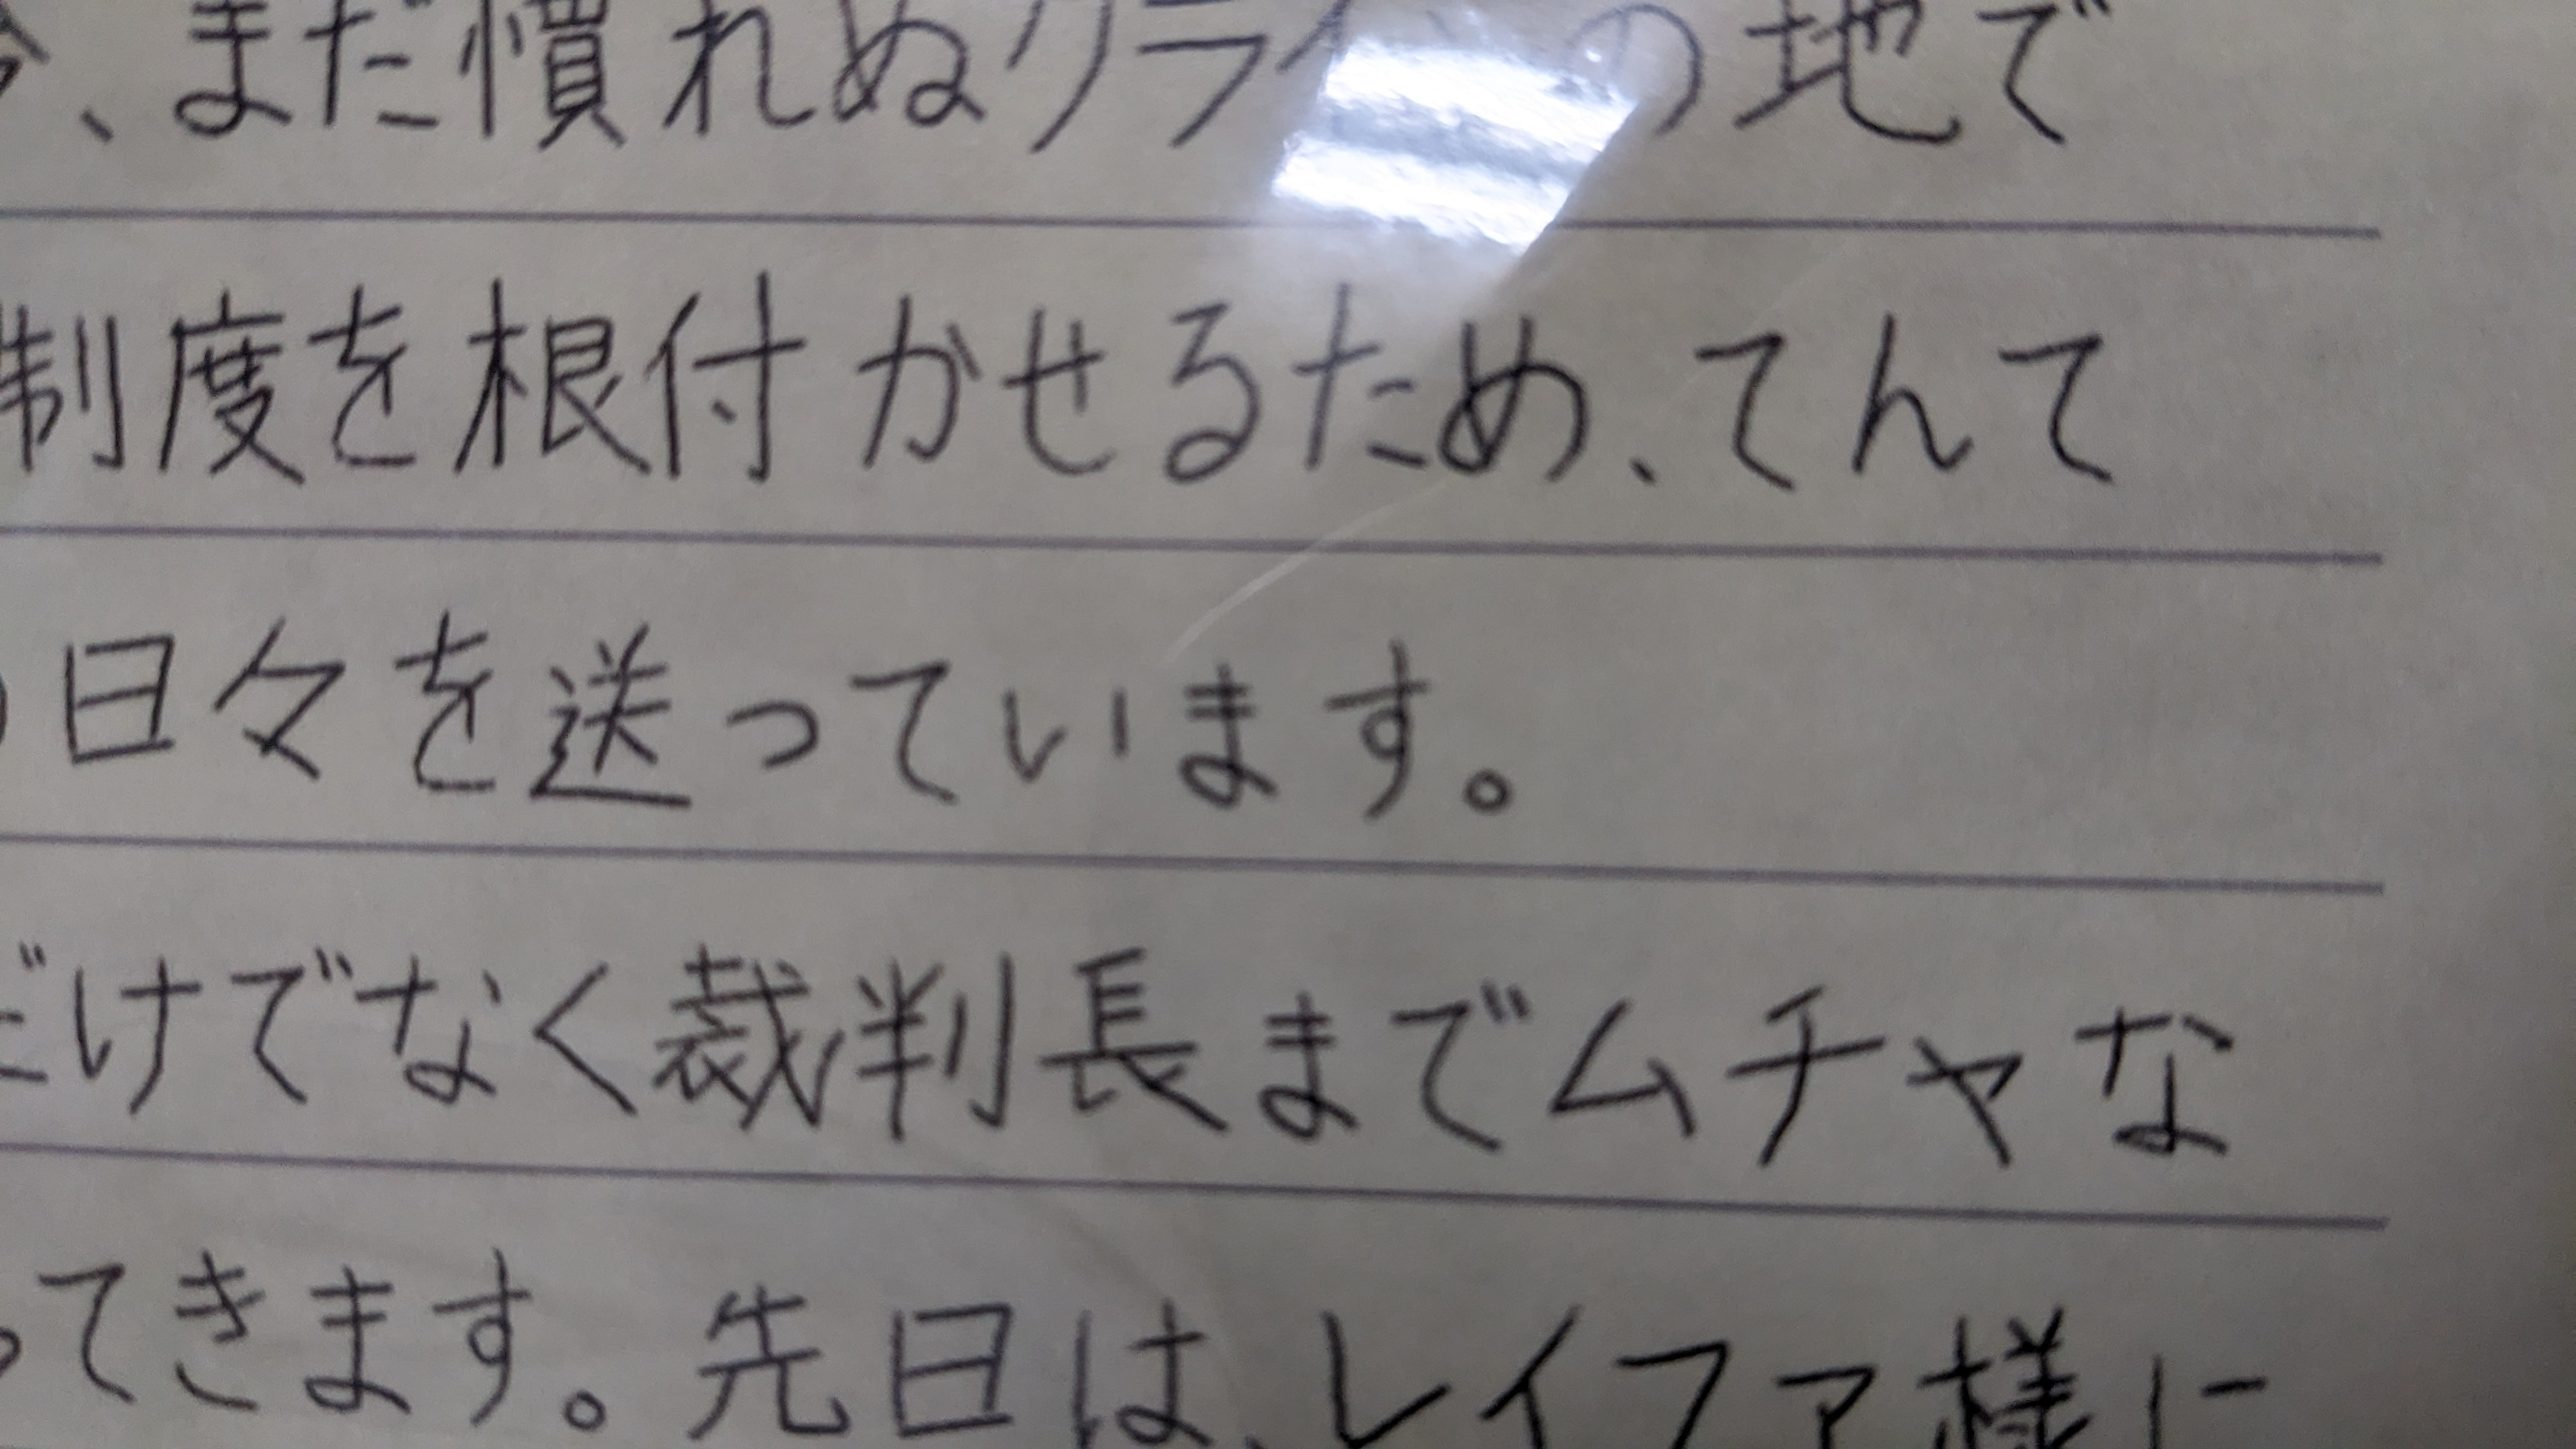 、まだ慣れぬクライの地で
制度を根付かせるため、てんて
日々を送っています。
だけでなく裁判長までムチャな
ってきます。先日は、レイファ様に